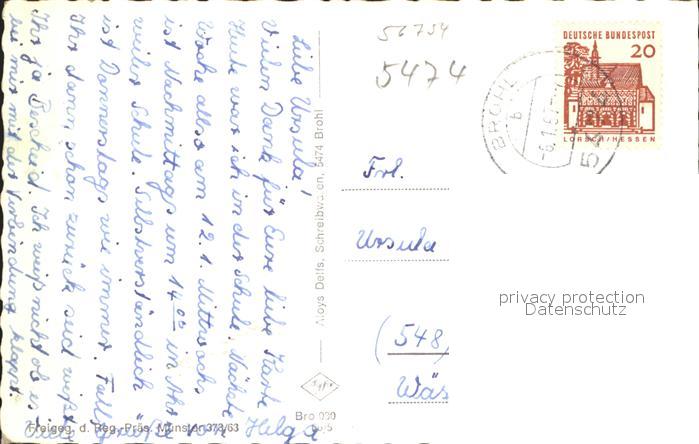 56754
5474
DEUTSCHE BUNDESPOST
20
LORSCH/HESSEN
BROHL
b
-6.1.6
54
Liebe Ursula!
Vielen Dank für Eure liebe Karte
Heute war ich in der Schule. Nächste
Woche also am 12.1. Mittwochs
ist Nachmittags um 14 oo in Ahr
weiler Schule. Selbstverständlich
ist Donnerstags wie immer. Falls
Ihr dann schon zurück seid wißt
Ihr ja Bescheid. Ich weiß nicht ob es
bei mir mit der Verbindung klappt.
Viele Grüße von Helga
Aloys Delfs, Schreibwaren, 5474 Brohl
Frl.
Ursula
(548
Wäs
privacy protection
Datenschutz
Agfa
Bro 030
Freigeg. d. Reg.-Präs. Münster 373/63